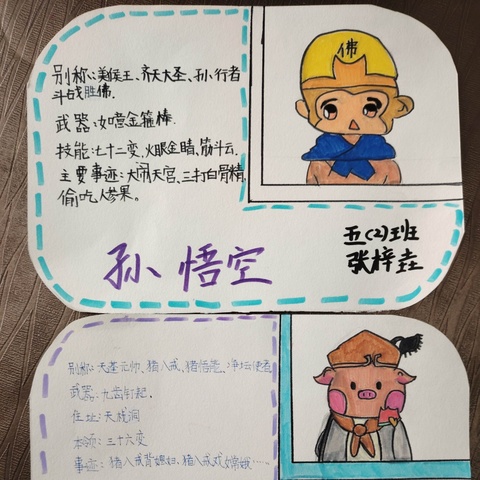 别称:美猴王、齐天大圣、孙行者
斗战胜佛.
武器:如意金箍棒.
技能:七十二变,火眼金睛,筋斗云,
主要事迹:大闹天宫、三打白骨精,
偷吃人参果。
佛
孙悟空
五(2)班
张梓垚
别称:天蓬元帅、猪八戒、猪悟能、净坛使者
武器:九齿钉耙.
住址:云栈洞
本领:三十六变
事迹:猪八戒背媳妇、猪八戒戏嫦娥……